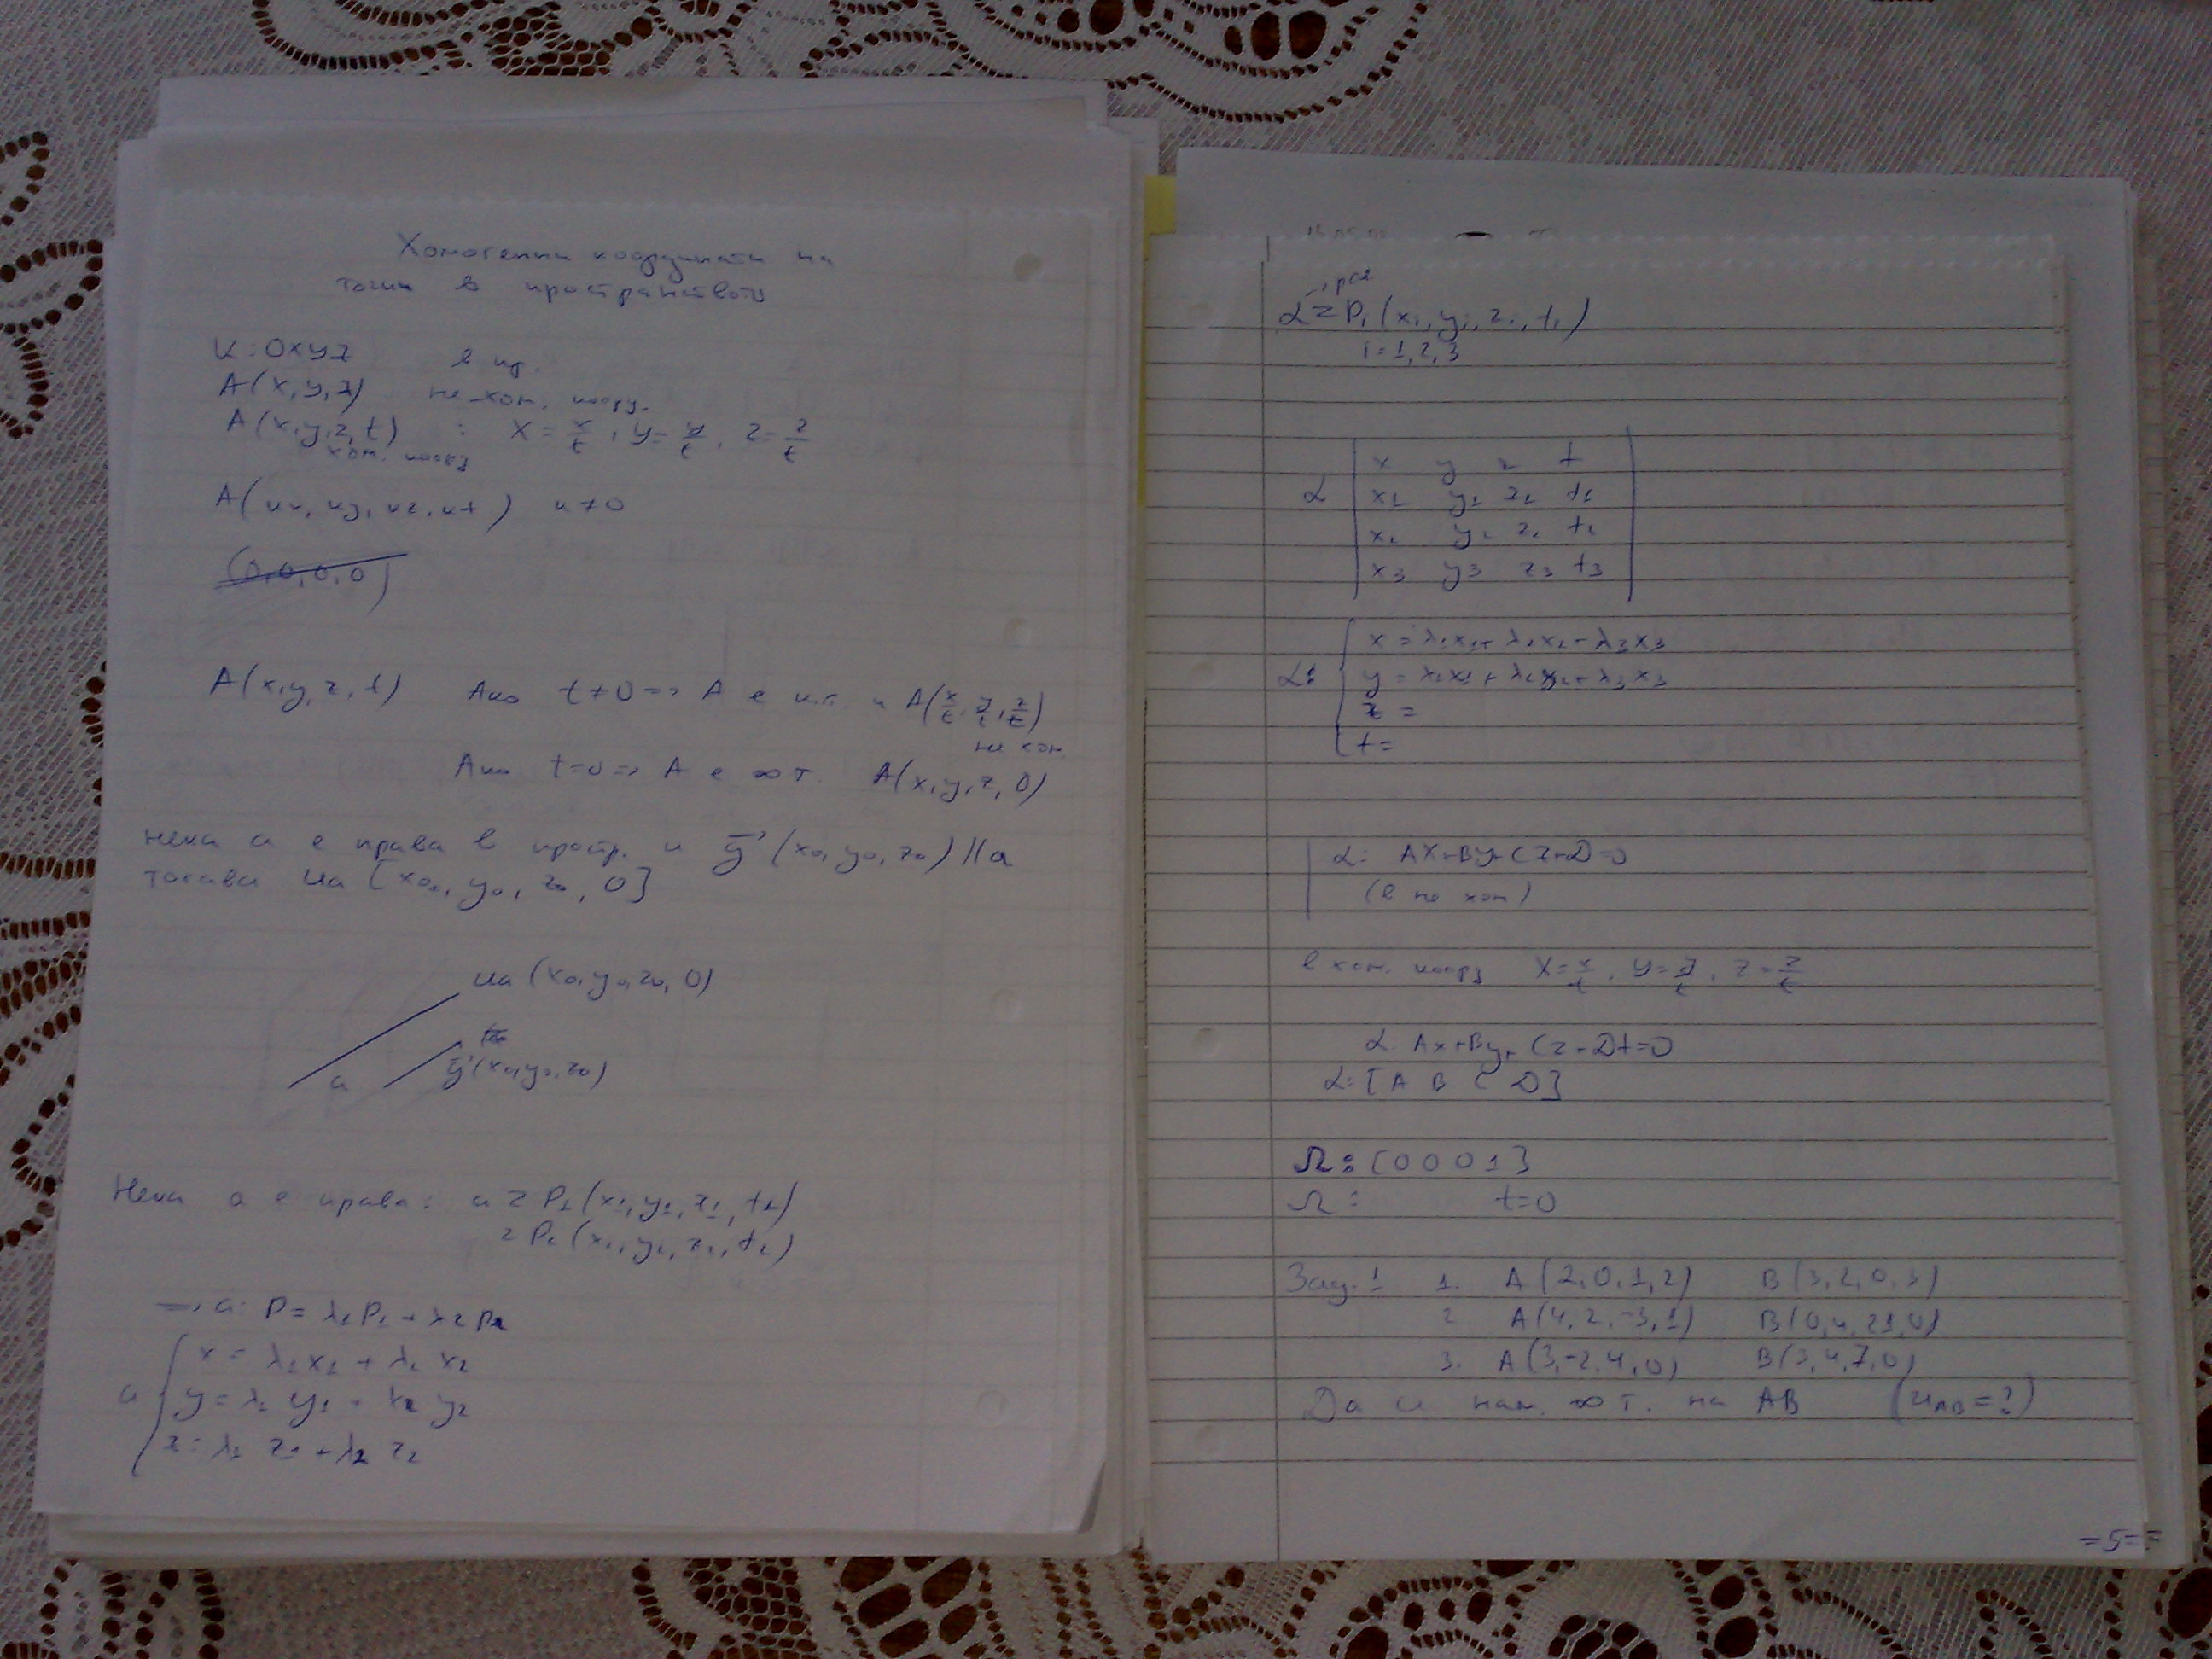 Хомогенни координати на
точки в пространството
K: Oxyz в пр.
A(x, y, z) не хом. коорд.
A(x, y, z, t) : X = x/t, y = y/t, z = z/t
хом. коорд
A(кx, кy, кz, кt) к ≠ 0
(0, 0, 0, 0)
A(x, y, z, t) Ако t ≠ 0 => A е к.т. и A(x/t, y/t, z/t)
не хом.
Ако t = 0 => A е ∞ т. A(x, y, z, 0)
нека a е права в простр. и g⃗ (x0, y0, z0) || a
тогава Ua [x0, y0, z0, 0]
Ua (x0, y0, z0, 0)
a g⃗ (x0, y0, z0)
Нека a е права: a z P1 (x1, y1, z1, t1)
z P2 (x2, y2, z2, t2)
=> a: P = λ1 P1 + λ2 P2
x = λ1 x1 + λ2 x2
a y = λ1 y1 + λ2 y2
z = λ1 z1 + λ2 z2
α z Pi (xi, yi, zi, ti)
i = 1, 2, 3
x y z t
α x1 y1 z1 t1
x2 y2 z2 t2
x3 y3 z3 t3
x = λ1x1 + λ2x2 + λ3x3
α: y = λ1x1 + λ2y2 + λ3x3
z =
t =
α: Ax + By + Cz + D = 0
(в не хом)
в хом. коорд X = x/t, y = y/t, z = z/t
α: Ax + By + Cz + Dt = 0
α: [A B C D]
Ω: [0 0 0 1]
Ω: t = 0
Зад. 1 1. A (2, 0, 1, 2) B (3, 2, 0, 3)
2 A(4, 2, -3, 1) B(0, 4, 21, 0)
3. A(3, -2, 4, 0) B(3, 4, 7, 0)
Да се нам. ∞ т. на AB (UAB = ?)
= 5 =